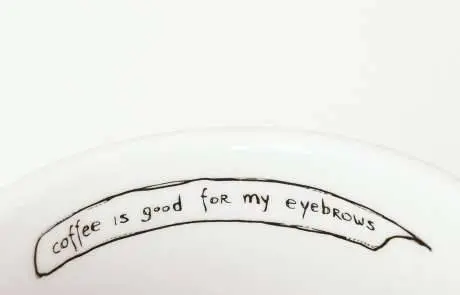 coffee is good for my eyebrows